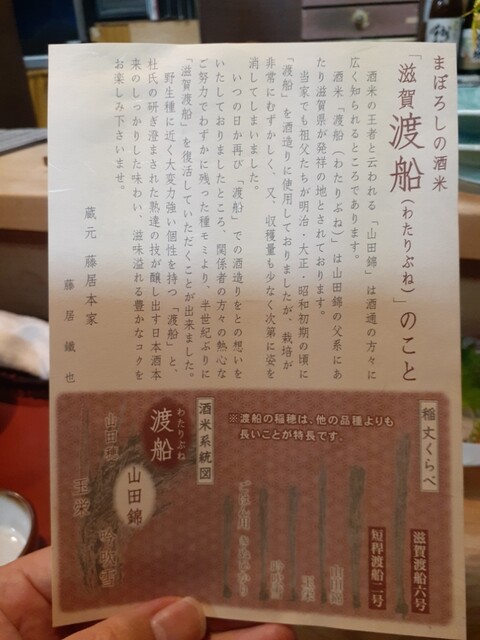 まぼろしの酒米
「滋賀渡船(わたりぶね)」のこと
酒米の王者と云われる「山田錦」は酒通の方々に
広く知られるところであります。
酒米「渡船(わたりぶね)」は山田錦の父系にあ
たり滋賀県が発祥の地とされております。
当家でも祖父たちが明治・大正・昭和初期の頃に
「渡船」を酒造りに使用しておりましたが、栽培が
非常にむずかしく、又、収穫量も少なく次第に姿を
消してしまいました。
いつの日か再び「渡船」での酒造りをとの想いを
いたしておりましたところ、関係者の方々の熱心な
ご努力でわずかに残った種モミより、半世紀ぶりに
「滋賀渡船」を復活していただくことが出来ました。
野生種に近く大変力強い個性を持つ「渡船」と、
杜氏の研ぎ澄まされた熟達の技が醸し出す日本酒本
来のしっかりした味わい、滋味溢れる豊かなコクを
お楽しみ下さいませ。
蔵元 藤居本家
藤居鐵也
稲丈くらべ
※渡船の稲穂は、他の品種よりも
長いことが特長です。
滋賀渡船六号
短稈渡船二号
山田錦
玉栄
吟吹雪
酒米系統図
わたりぶね
渡船
山田錦
山田穂
玉栄
吟吹雪